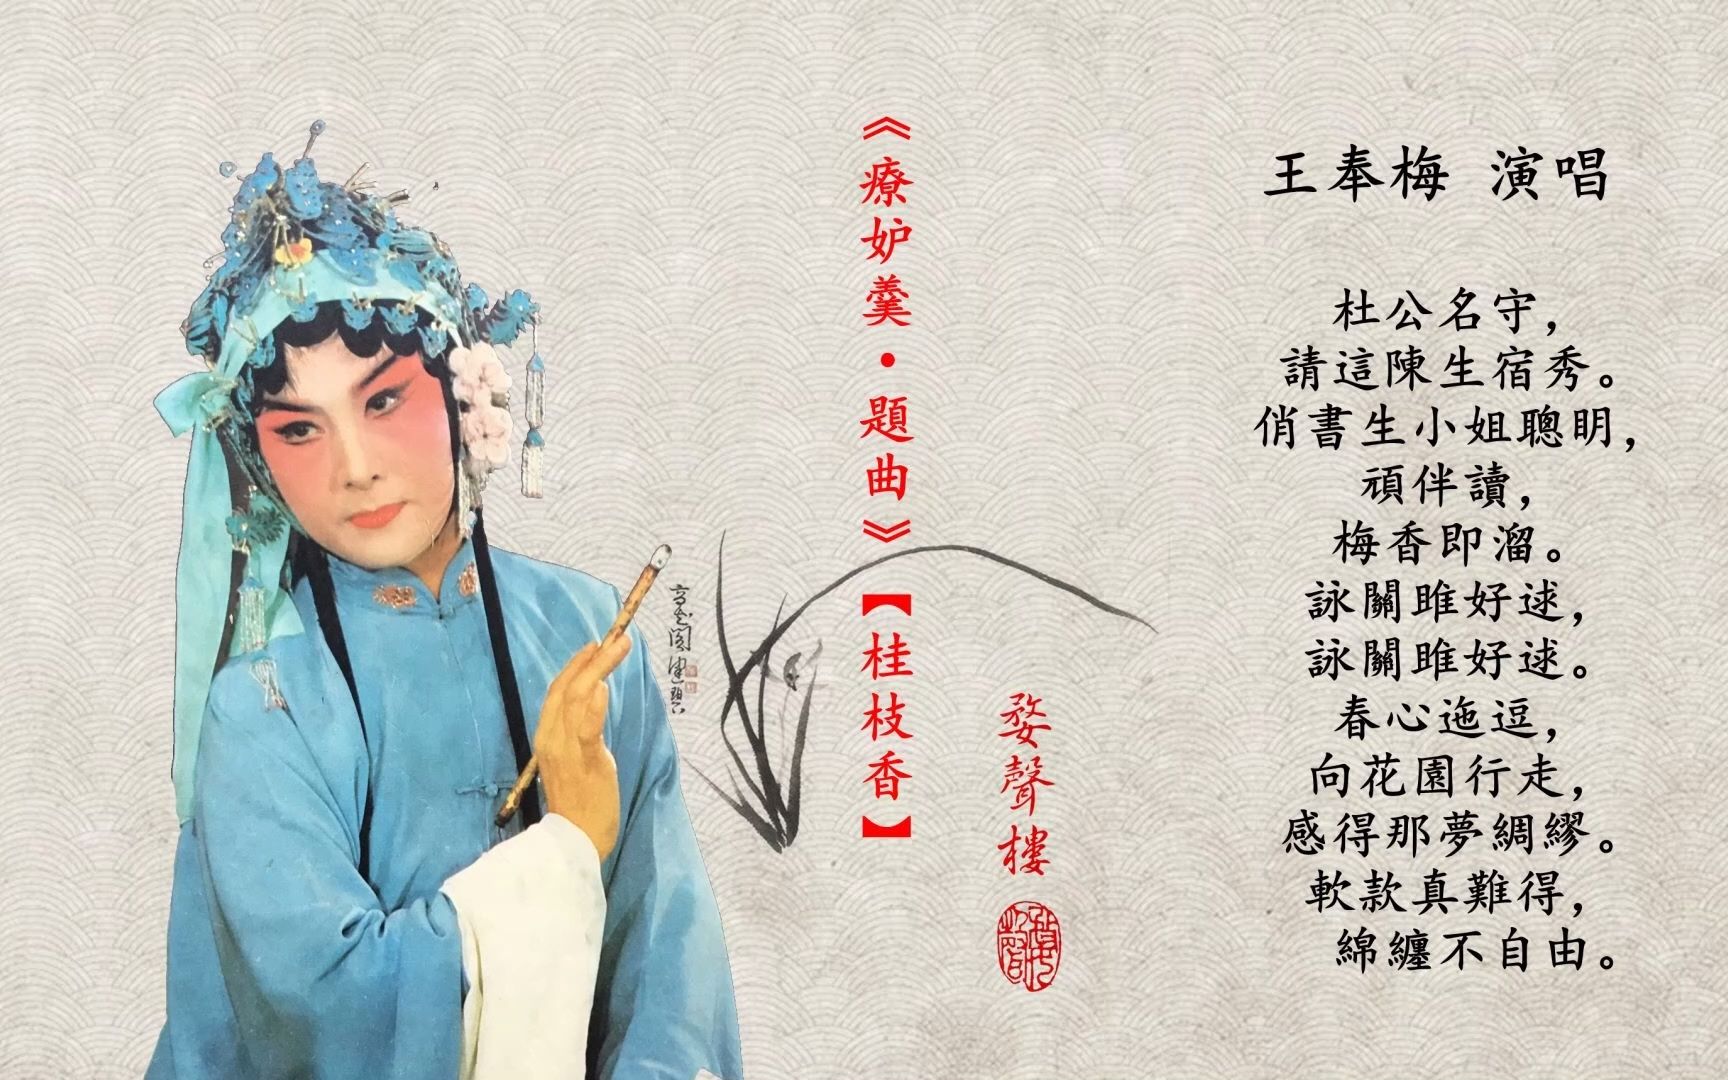 王奉梅 演唱
杜公名守，
請這陳生宿秀。
俏書生小姐聰明，
頑伴讀，
梅香即溜。
詠關雎好逑，
詠關雎好逑。
春心迤逗，
向花園行走，
感得那夢綢繆。
軟款真難得，
綿纏不自由。
《療妒羹·題曲》【桂枝香】
婺聲樓